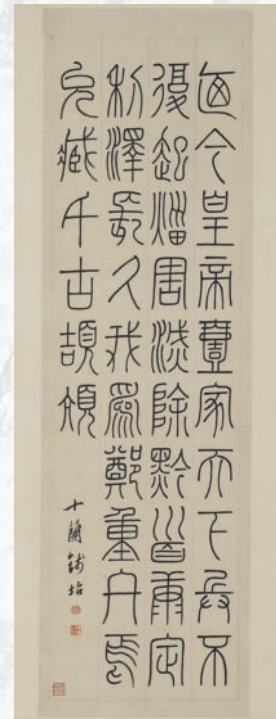 廼今皇帝壹家天下兵不
復起災害滅除黔首康定
利澤長久我爲鄭重
藏千古頡頏
十蘭錢坫